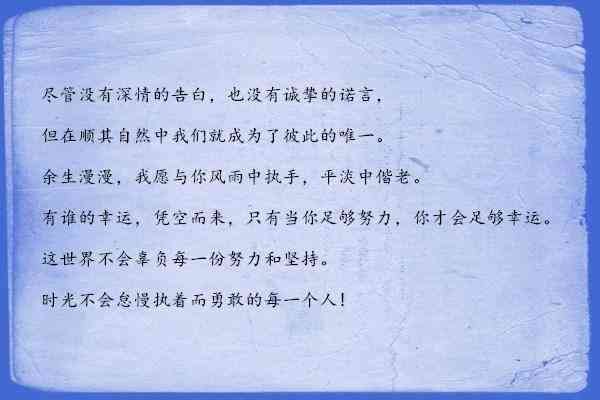 尽管没有深情的告白，也没有诚挚的诺言，
但在顺其自然中我们就成为了彼此的唯一。
余生漫漫，我愿与你风雨中执手，平淡中偕老。
有谁的幸运，凭空而来，只有当你足够努力，你才会足够幸运。
这世界不会辜负每一份努力和坚持。
时光不会怠慢执着而勇敢的每一个人！